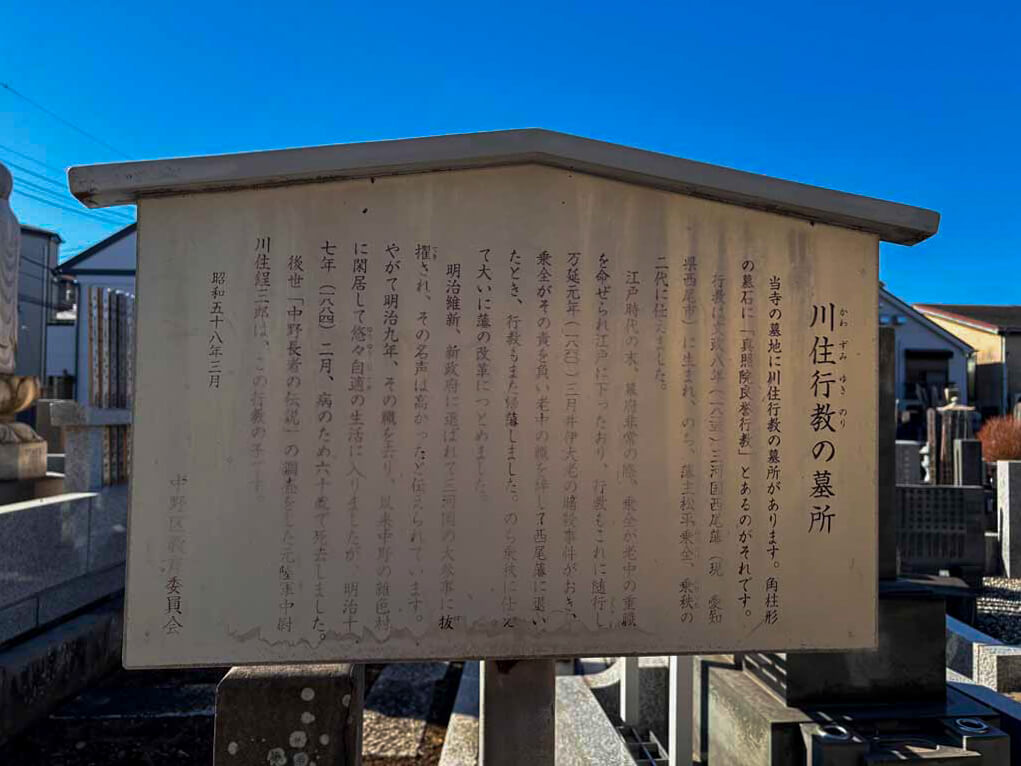 川住行教の墓所
かわ ずみ ゆき のり
当寺の墓地に川住行教の墓所があります。角柱形
の墓石に「真照院良誉行教」とあるのがそれです。
行教は文政八年(一八二五)三河国西尾藩(現 愛知
県西尾市)に生まれ、のち、藩主松平乗全、乗秩の
二代に仕えました。
江戸時代の末、幕府非常の際、乗全が老中の重職
を命ぜられ江戸に下ったおり、行教もこれに随行し
万延元年(一八六〇)三月井伊大老の暗殺事件がおき、
乗全がその責を負い老中の職を辞して西尾藩に退い
たとき、行教もまた帰藩しました。のち乗秩に仕え
て大いに藩の改革につとめました。
明治維新、新政府に選ばれて三河国の大参事に抜
擢され、その名声は高かったと伝えられています。
やがて明治九年、その職を去り、以来中野の雑色村
に閑居して悠々自適の生活に入りましたが、明治十
七年(一八八四)二月、病のため六十歳で死去しました。
後世「中野長者の伝説」の調査をした元陸軍中尉
川住鋥三郎は、この行教の子です。
昭和五十八年三月
中野区教育委員会